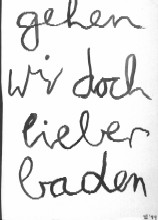 gehen
wir doch
lieber
baden